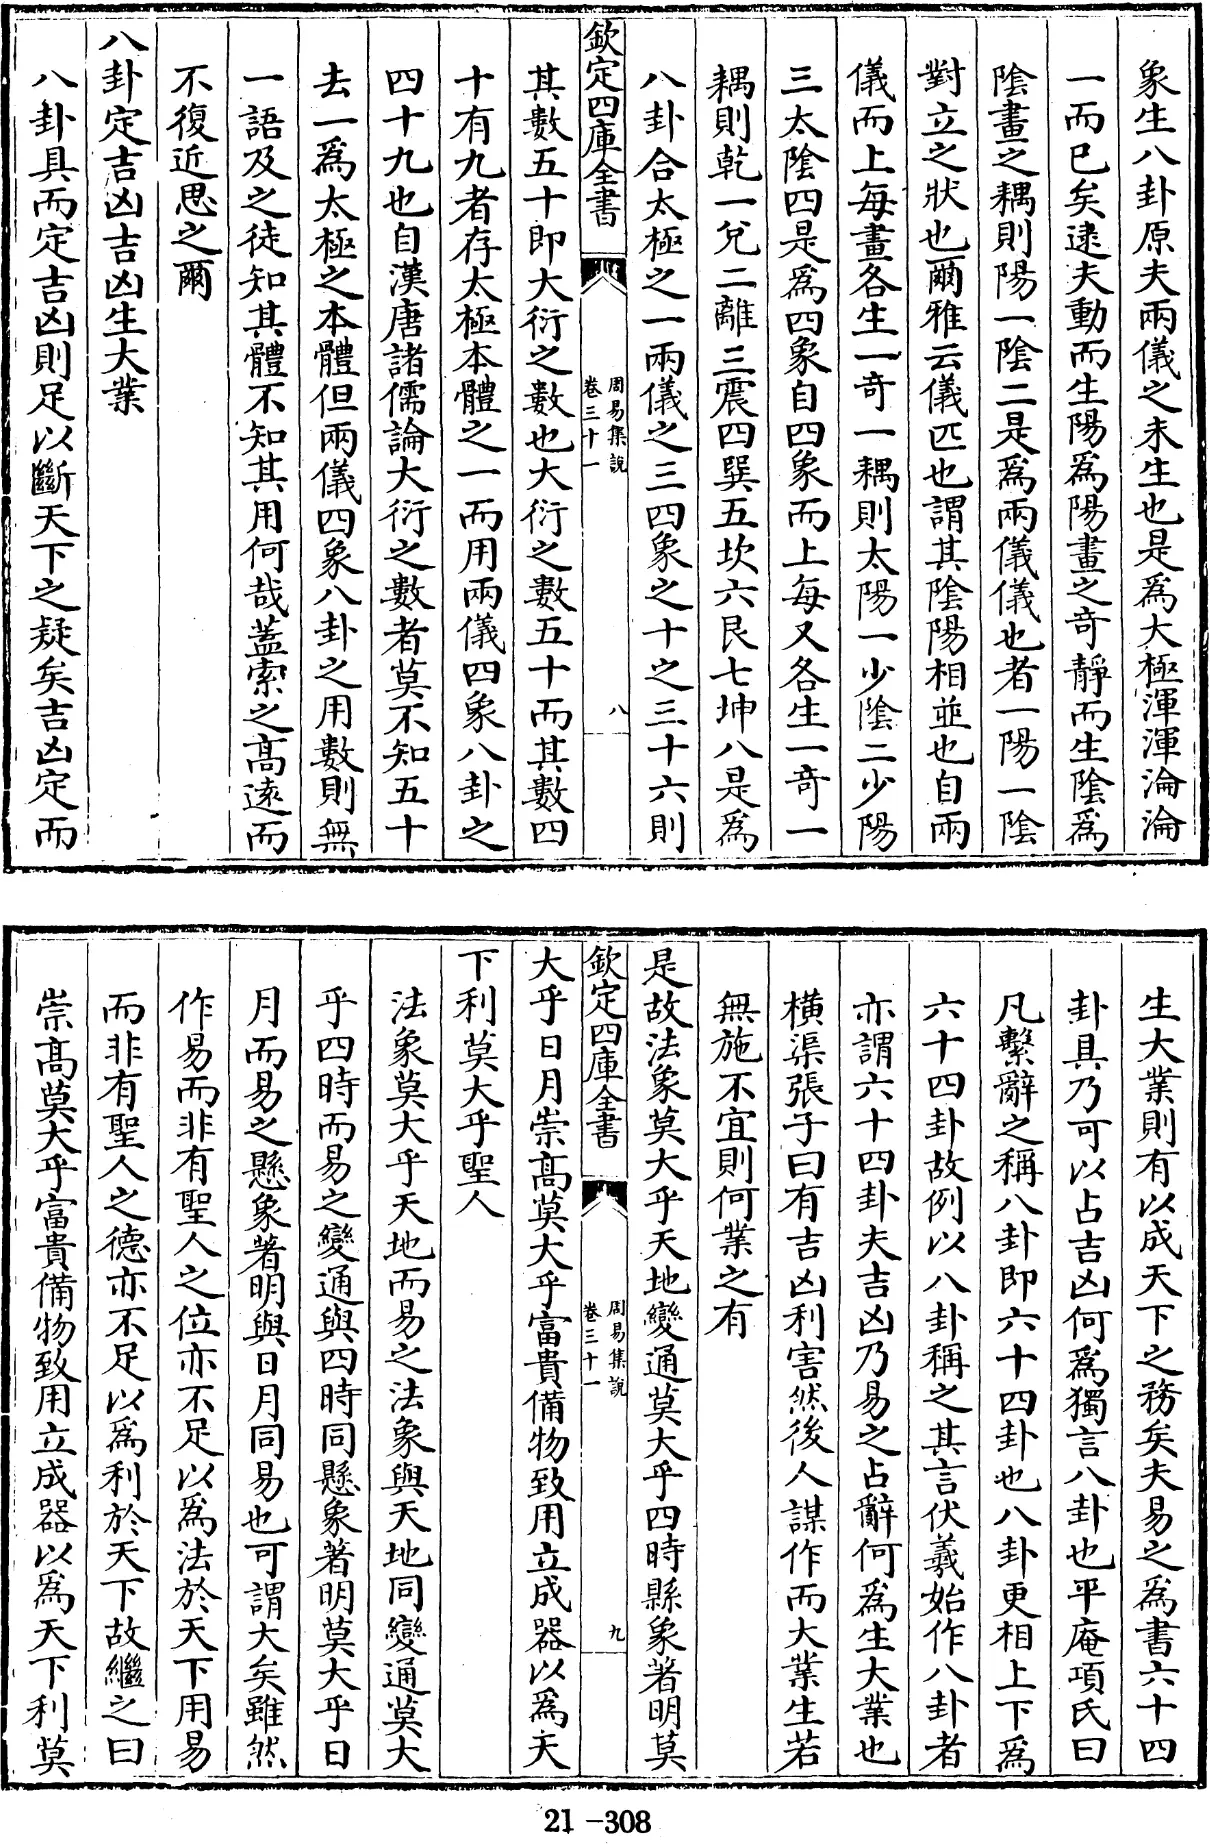 象生八卦原夫兩儀之未生也是爲太極渾渾淪淪
一而已矣逮夫動而生陽爲陽畫之奇靜而生陰爲
陰畫之耦則陽一陰二是爲兩儀儀也者一陽一陰
對立之狀也爾雅云儀匹也謂其陰陽相並也自兩
儀而上每畫各生一奇一耦則太陽一少陰二少陽
三太陰四是爲四象自四象而上每又各生一奇一
耦則乾一兌二離三震四巽五坎六艮七坤八是爲
八卦合太極之一兩儀之三四象之十之三十六則
欽定四庫全書
周易集說
卷三十一
八
其數五十即大衍之數也大衍之數五十而其數四
十有九者存太極本體之一而用兩儀四象八卦之
四十九也自漢唐諸儒論大衍之數者莫不知五十
去一爲太極之本體但兩儀四象八卦之用數則無
一語及之徒知其體不知其用何哉蓋索之高遠而
不復近思之爾
八卦定吉凶吉凶生大業
八卦具而定吉凶則足以斷天下之疑矣吉凶定而
生大業則有以成天下之務矣夫易之爲書六十四
卦具乃可以占吉凶何爲獨言八卦也平庵項氏曰
凡繫辭之稱八卦即六十四卦也八卦更相上下爲
六十四卦故例以八卦稱之其言伏羲始作八卦者
亦謂六十四卦夫吉凶乃易之占辭何爲生大業也
橫渠張子曰有吉凶利害然後人謀作而大業生若
無施不宜則何業之有
是故法象莫大乎天地變通莫大乎四時縣象著明莫
欽定四庫全書
周易集說
卷三十一
九
大乎日月崇高莫大乎富貴備物致用立成器以爲天
下利莫大乎聖人
法象莫大乎天地而易之法象與天地同變通莫大
乎四時而易之變通與四時同懸象著明莫大乎日
月而易之懸象著明與日月同易也可謂大矣雖然
作易而非有聖人之位亦不足以爲法於天下用易
而非有聖人之德亦不足以爲利於天下故繼之曰
崇高莫大乎富貴備物致用立成器以爲天下利莫
21-308